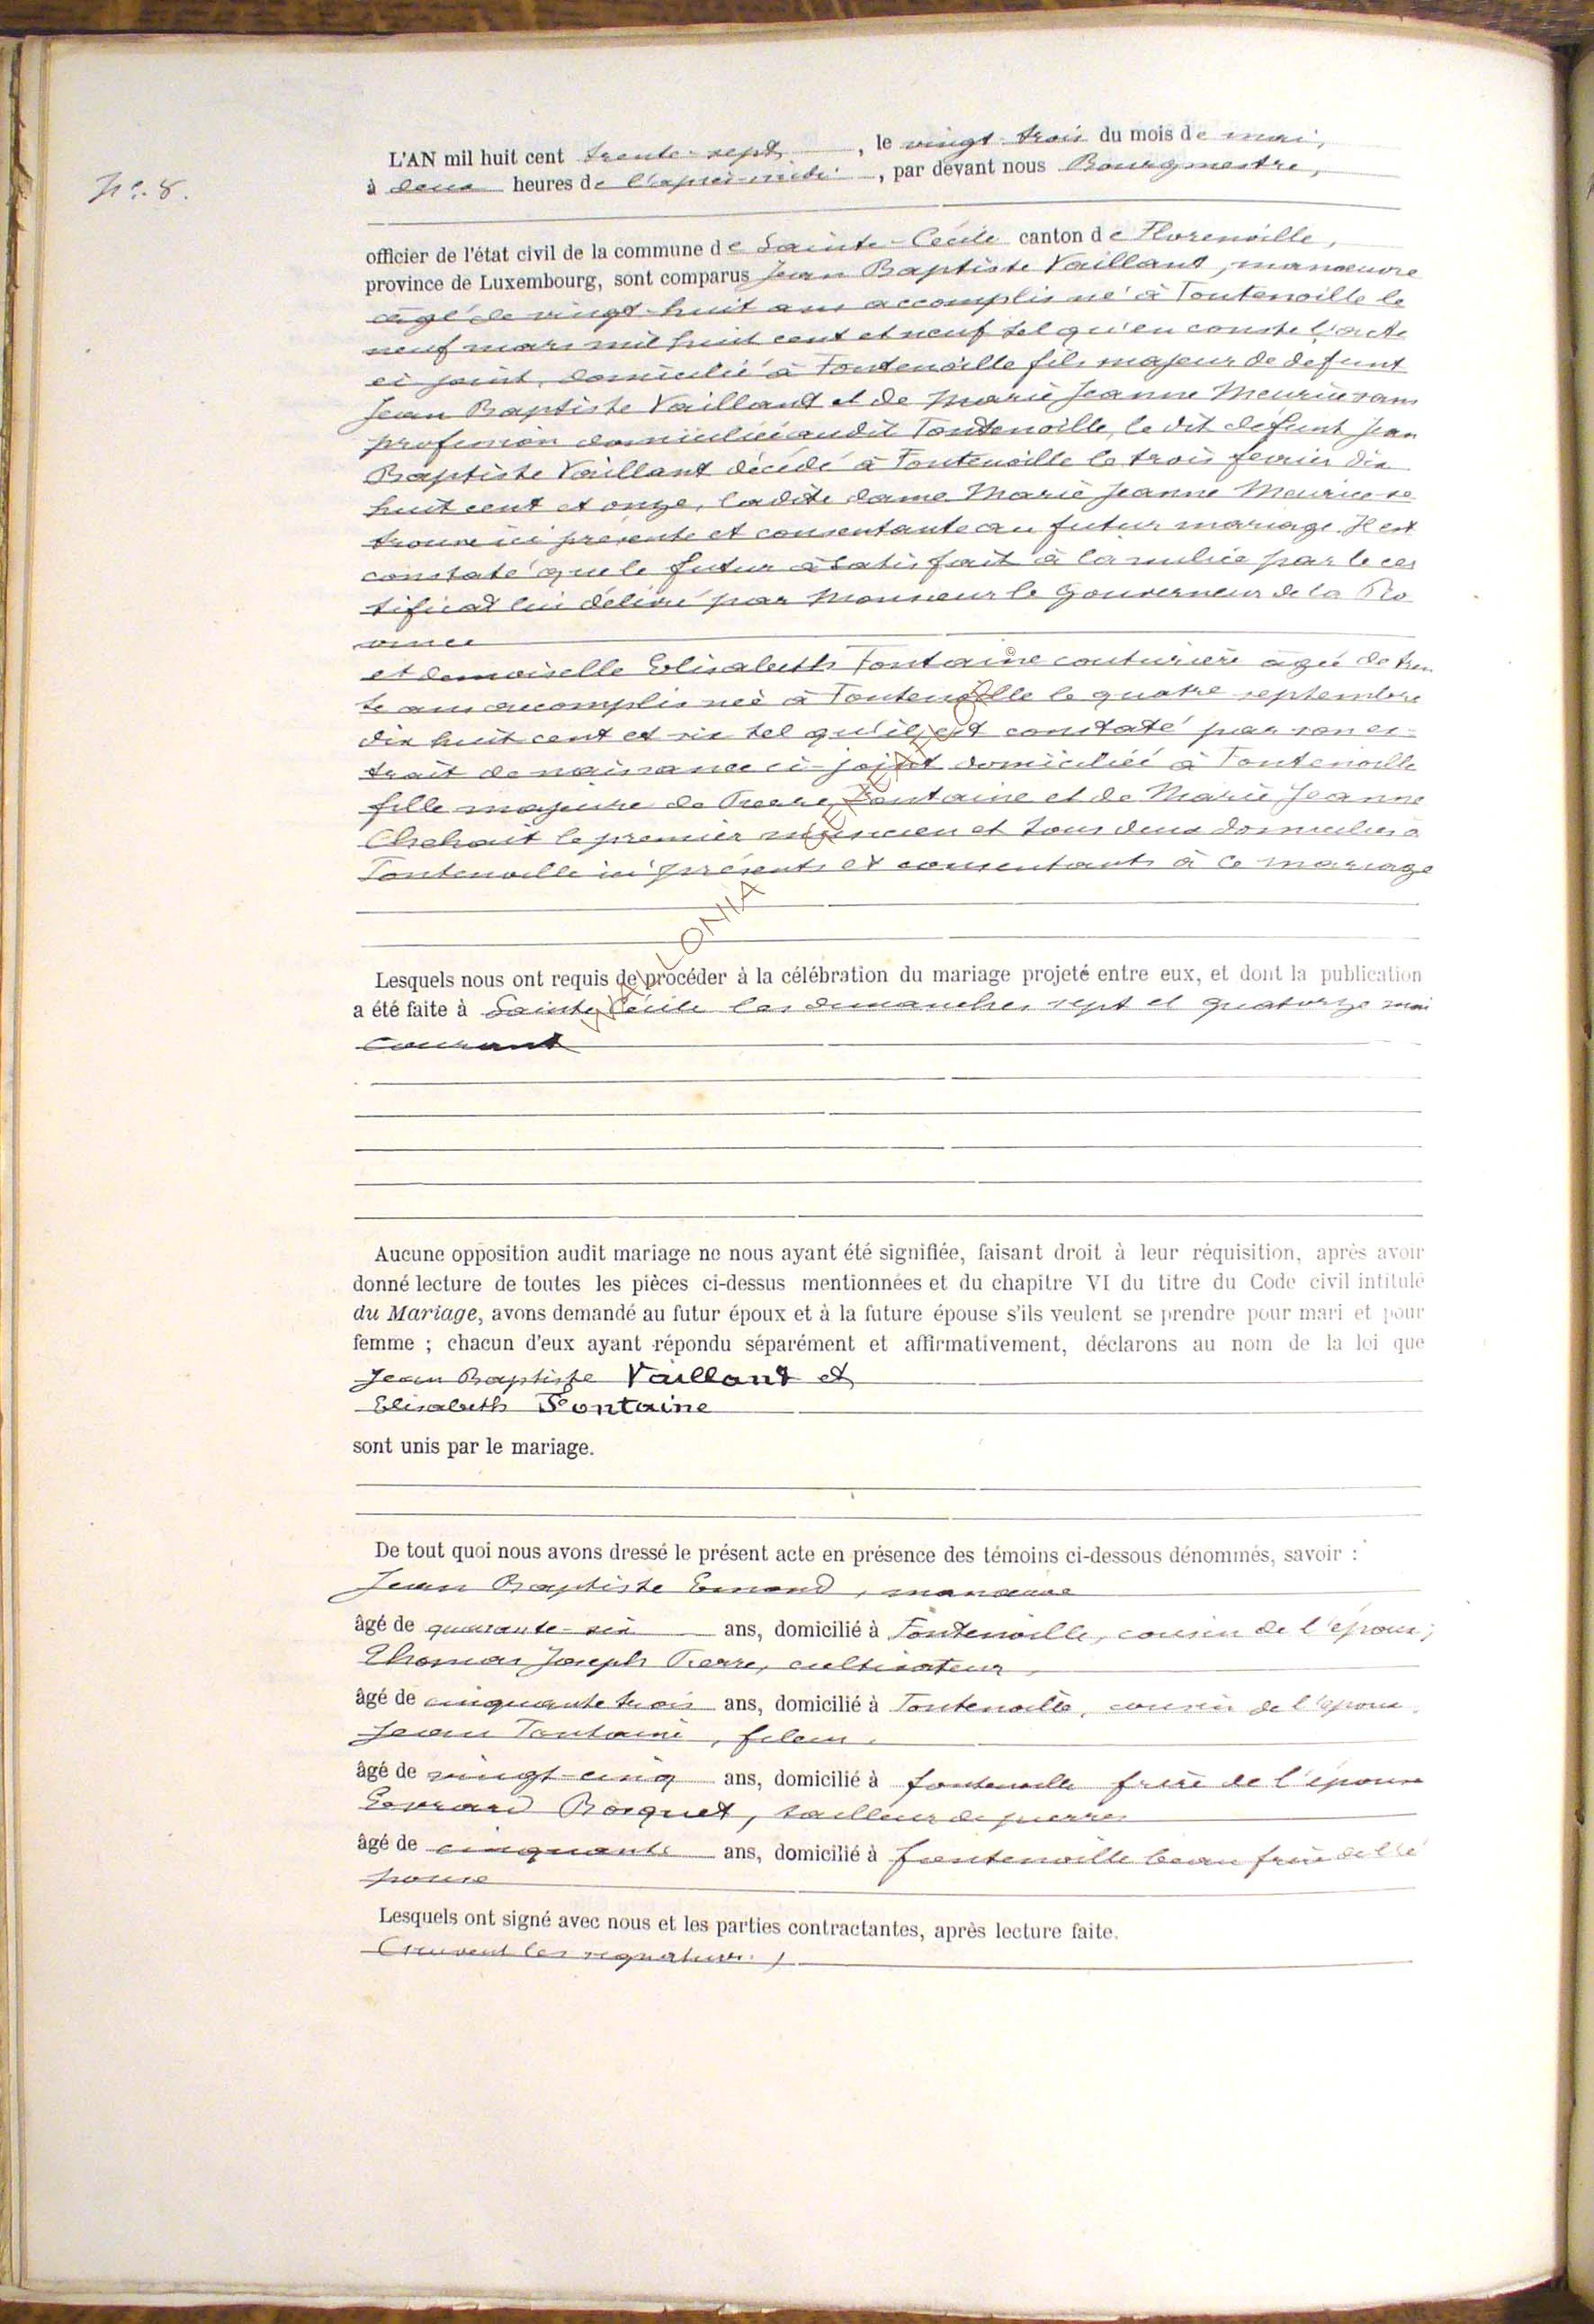 N°. 8.
L'AN mil huit cent trente-sept, le vingt-trois du mois de mai,
à deux heures de l'après-midi, par devant nous Bourgmestre,
officier de l'état civil de la commune de Sainte-Cécile canton de Florenville,
province de Luxembourg, sont comparus Jean Baptiste Vaillant, manœuvre
âgé de vingt-huit ans accomplis né à Fontenoille le
neuf mars mil huit cent et neuf tel qu'en conste l'acte
ci joint, domicilié à Fontenoille fils majeur de defunt
Jean Baptiste Vaillant et de Marie Jeanne Meurice sans
profession domiciliée audit Fontenoille, le dit défunt Jean
Baptiste Vaillant décédé à Fontenoille le trois fevrier dix
huit cent et onze, ladite dame Marie Jeanne Meurice se
trouve ici présente et consentante au futur mariage. Il est
constaté que le futur à satisfait à la milice par le cer
tificat lui délivré par Monsieur le Gouverneur de la Pro
vince
et demoiselle Elisabeth Fontaine couturière agée de tren
te ans accomplis née à Fontenoille le quatre septembre
dix huit cent et six tel qu'il est constaté par son ex-
trait de naissance ci-joint domiciliée à Fontenoille
fille majeure de Pierre Fontaine et de Marie Jeanne
le premier et tous deux domiciliés à
Fontenoille ici présents et consentants à ce mariage
Lesquels nous ont requis de procéder à la célébration du mariage projeté entre eux, et dont la publication
a été faite à Sainte Cécile les dimanches sept et quatorze mai
courant
Aucune opposition audit mariage ne nous ayant été signifiée, faisant droit à leur réquisition, après avoir
donné lecture de toutes les pièces ci-dessus mentionnées et du chapitre VI du titre du Code civil intitulé
du Mariage, avons demandé au futur époux et à la future épouse s'ils veulent se prendre pour mari et pour
femme ; chacun d'eux ayant répondu séparément et affirmativement, déclarons au nom de la loi que
Jean Baptiste Vaillant et
Elisabeth Fontaine
sont unis par le mariage.
De tout quoi nous avons dressé le présent acte en présence des témoins ci-dessous dénommés, savoir :
Jean Baptiste Emond, manœuvre
âgé de quarante-six ans, domicilié à Fontenoille, cousin de l'époux;
Thomas Joseph Pierre, cultivateur,
âgé de cinquante trois ans, domicilié à Fontenoille, cousin de l'époux.
Jean Fontaine, fileur,
âgé de vingt-cinq ans, domicilié à fontenoille frère de l'épouse
Evrard Bosquet, tailleur de pierres
âgé de cinquante ans, domicilié à fontenoille beau frère de l'é
pouse
Lesquels ont signé avec nous et les parties contractantes, après lecture faite.
(suivent les signatures.)